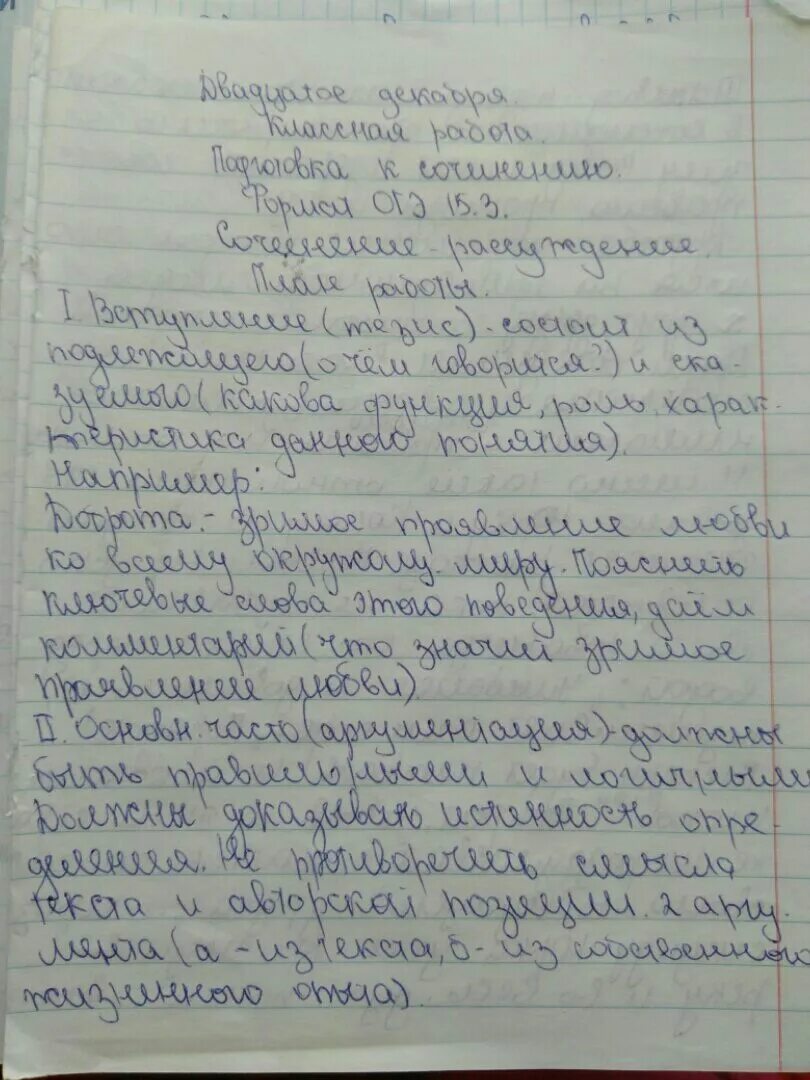 Двадцатое декабря.
Классная работа.
Подготовка к сочинению.
Формат ОГЭ 15.3.
Сочинение-рассуждение.
План работы.
I. Вступление (тезис) - состоит из
подлежащего (о чём говорится?) и ска-
зуемого (какова функция, роль, харак-
теристика данного понятия).
Например:
Доброта - зримое проявление любви
ко всему окружому миру. Пояснить
ключевые слова этого поведения, даём
комментарий (что значит зримое
проявление любви)
II. Основн. часть (аргументация) - должны
быть правильными и логичными
Должны доказывать истинность опре-
деления. Не противоречить смысла
текста и авторской позиции. 2 аргу-
мента (а - из текста, б - из собственного
жизненного опыта).